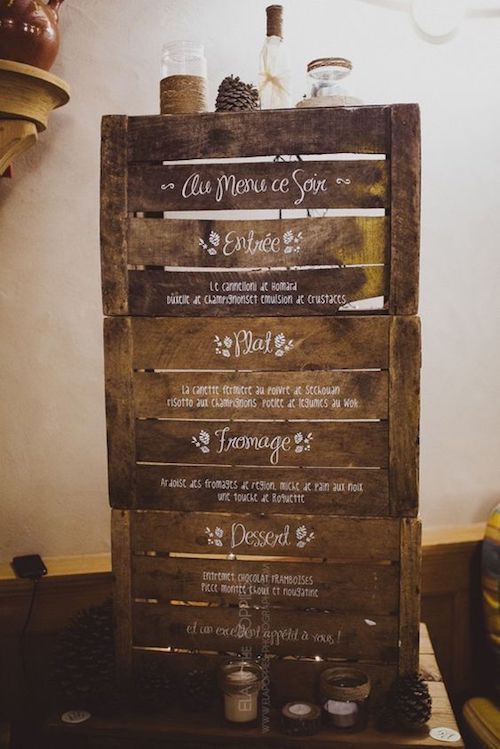 Au Menu ce Soir
Entrée
Le cannelloni de Homard
Duxelle de champignonset emulsion de crustaces
Plat
La canette fermière au poivre de Sechouan
risotto aux champignons poelee de legumes au Wok
Fromage
Ardoise des fromages de region, miche de pain aux noix
une touche de Roquette
Dessert
Entremet chocolat framboises
Piece montee choux et nougatine
et un excellent appétit à vous !